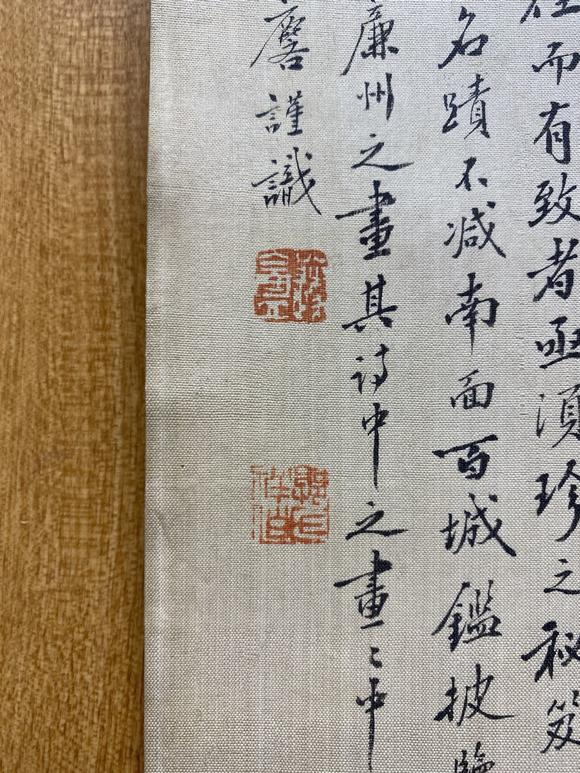 而有致者亟須珍之秘笈
名蹟不減南面百城鑑披
廉州之畫其詩中之畫〻中
謹識